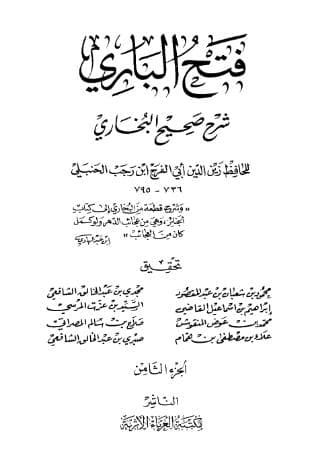 فتح الباري
شرح صحيح البخاري
للحافظ زين الدين أبي الفرج ابن رجب الحنبلي
٧٣٦ - ٧٩٥
« وشرح قطعة من البخاري إلى كتاب
الجنائز، وهي من عجائب الدهر ولو كمل
كان من العجائب »
ابن عبد الهادي
تحقيق
محمود بن شعبان بن عبد المقصود مجدي بن عبد الخالق الشافعي
إبراهيم بن إسماعيل القاضي السيد بن عزت المرسي
محمد بن عوض المنقوش صلاح بن سالم المصراتي
علاء بن مصطفى بن همام صبري بن عبد الخالق الشافعي
الجزء الثامن
الناشر
مكتبة الغرباء الأثرية